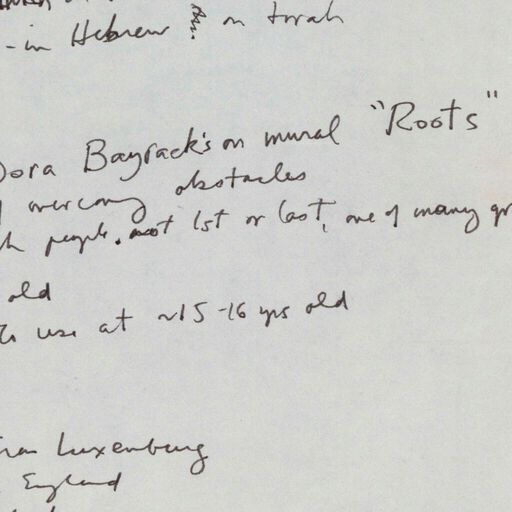 - in Hebrew on torah
Dora Bayrack's on mural "Roots"
overcoming obstacles
people. not 1st or last, one of many gr
old
use at ~15-16 yrs old
Luxenburg
England